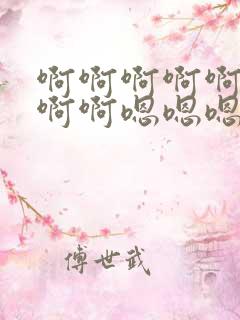 啊啊啊啊啊
啊啊嗯嗯嗯
傅世武